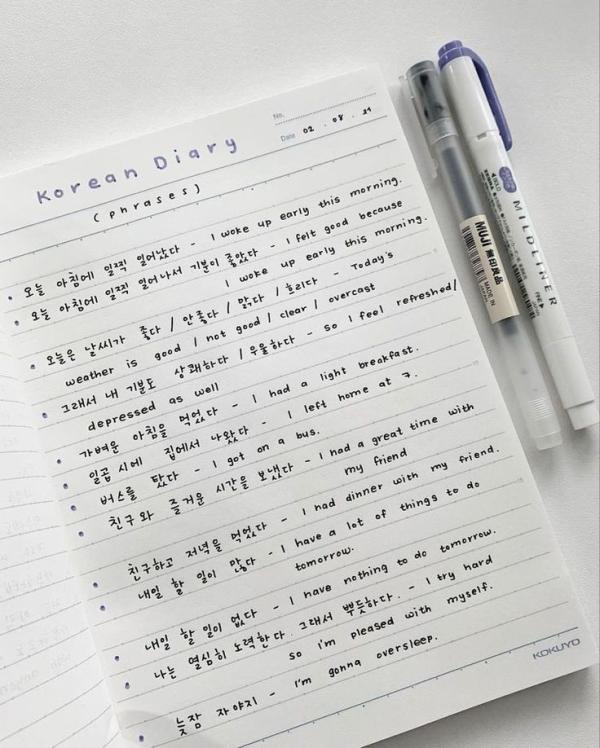 Korean Diary
(phrases)
No.
Date 02 . 08 . 21
• 오늘 아침에 일찍 일어났다 - I woke up early this morning.
• 오늘 아침에 일찍 일어나서 기분이 좋았다 - I felt good because
I woke up early this morning.
• 오늘은 날씨가 좋다 / 안좋다 / 맑다 / 흐리다 - Today's
weather is good / not good / clear / overcast
• 그래서 내 기분도 상쾌하다 / 우울하다 - so I feel refreshed/
depressed as well
• 가벼운 아침을 먹었다 - I had a light breakfast.
• 일곱 시에 집에서 나왔다 - I left home at 7.
• 버스를 탔다 - I got on a bus.
• 친구와 즐거운 시간을 보냈다 - I had a great time with
my friend
• 친구하고 저녁을 먹었다 - I had dinner with my friend.
• 내일 할 일이 많다 - I have a lot of things to do
tomorrow.
• 내일 할 일이 없다 - I have nothing to do tomorrow.
• 나는 열심히 노력한다. 그래서 뿌듯하다. - I try hard
so I'm pleased with myself.
• 늦잠 자야지 - I'm gonna oversleep.
KOKUYO
MUJI 無印良品
MADE IN JAPAN
MILDLINER